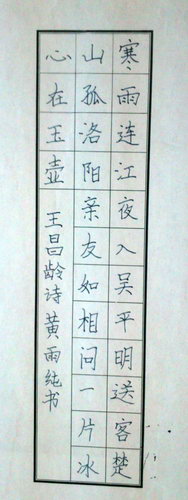 寒雨连江夜入吴平明送客楚
山孤洛阳亲友如相问一片冰
心在玉壶 王昌龄诗 黄雨纯书